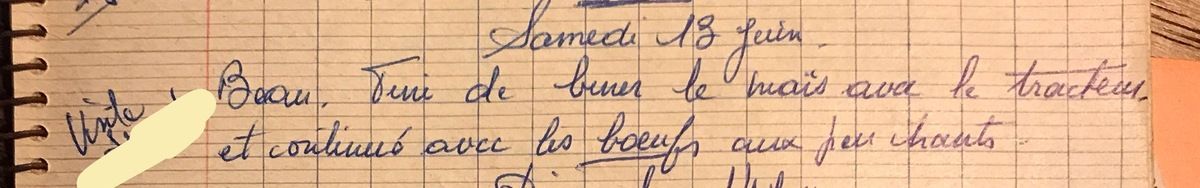 Samedi 13 Juin.
Beau. Fini de biner le maïs avec le tracteur.
Visite
et continué avec les bœufs aux penchants.